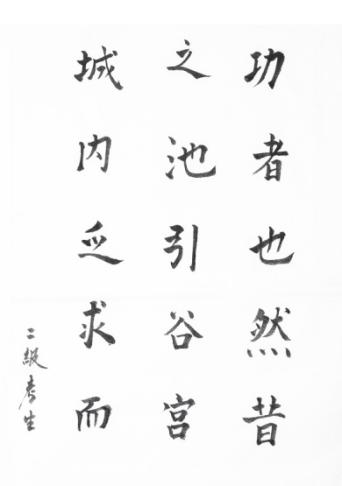 功者也然昔
之池引谷宮
城内乏求而
二級考生